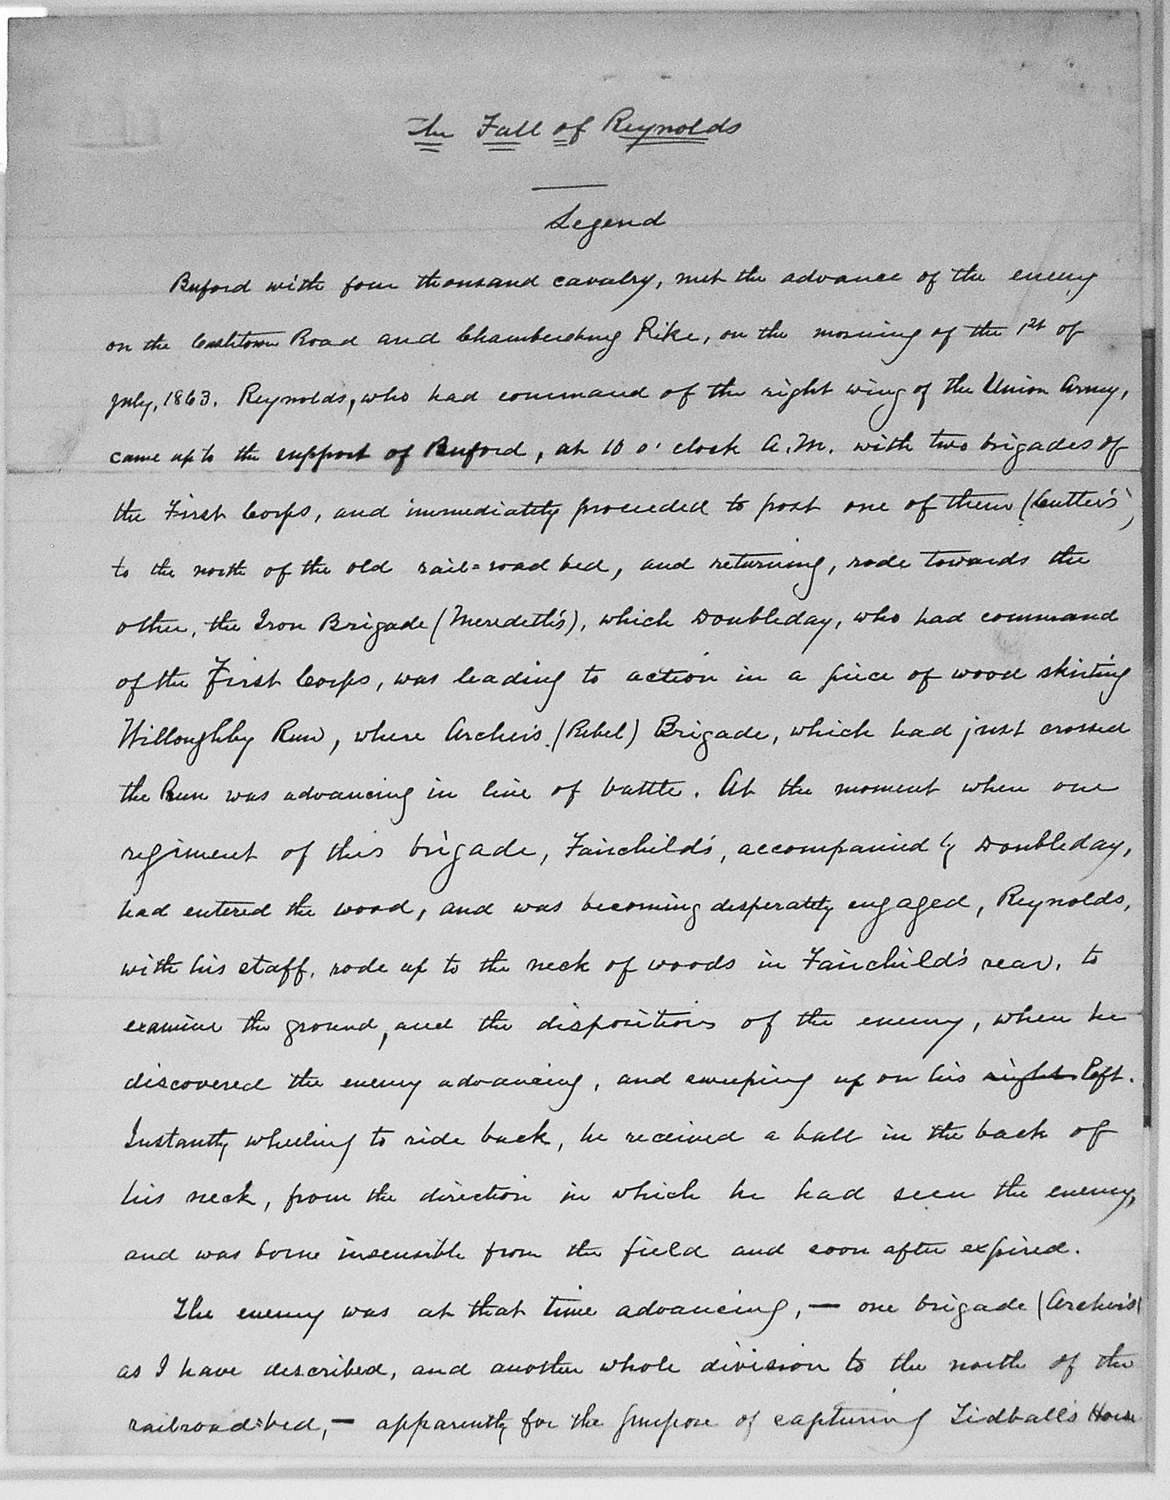 The Fall of Reynolds
Legend
Buford with four thousand cavalry, met the advance of the enemy
on the Cashtown Road and Chambersburg Pike, on the morning of the 1st of
July, 1863. Reynolds, who had command of the right wing of the Union Army,
came up to the support of Buford, at 10 o'clock A.M. with two brigades of
the First Corps, and immediately proceeded to post one of them (Cutler's)
to the north of the old rail=road bed, and returning, rode towards the
other, the Iron Brigade (Meredeth's), which Doubleday, who had command
of the First Corps, was leading to action in a piece of wood skirting
Willoughby Run, where Archer's (Rebel) Brigade, which had just crossed
the Run was advancing in line of battle. At the moment when one
regiment of this brigade, Fairchild's, accompanied by Doubleday,
had entered the wood, and was becoming desperately engaged, Reynolds,
with his staff, rode up to the neck of woods in Fairchild's rear, to
examine the ground, and the dispositions of the enemy, when he
discovered the enemy advancing, and sweeping up on his right left.
Instantly wheeling to ride back, he received a ball in the back of
his neck, from the direction in which he had seen the enemy,
and was borne insensible from the field and soon after expired.
The enemy was at that time advancing, — one brigade (Archer's)
as I have described, and another whole division to the north of the
railroad=bed, — apparently for the purpose of capturing Tidball's Horse